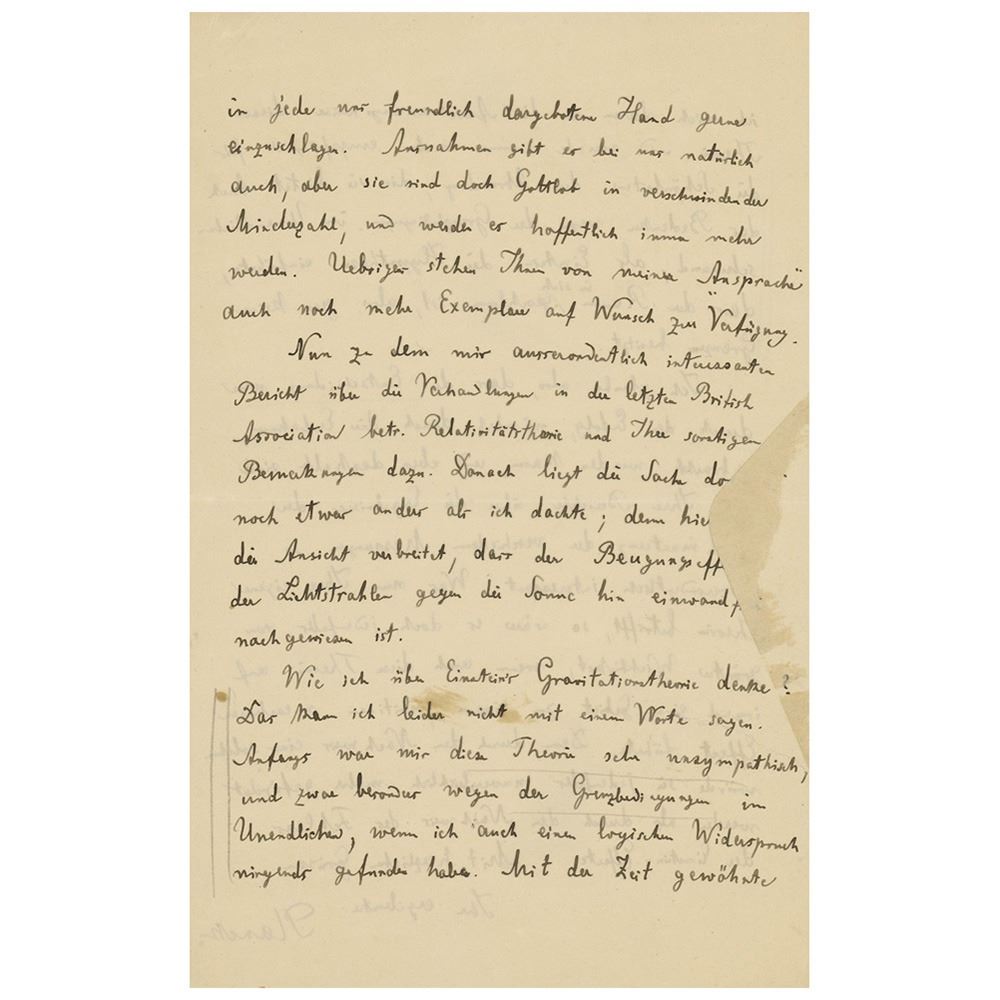 in jede uns freundlich dargebotene Hand gerne
einzuschlagen. Ausnahmen gibt es bei uns natürlich
auch, aber sie sind doch Gottlob in verschwindender
Minderzahl, und werden es hoffentlich immer mehr
werden. Uebrigens stehen Ihnen von meiner "Ansprache"
auch noch mehr Exemplare auf Wunsch zur Verfügung.
Nun zu dem mir ausserordentlich interessanten
Bericht über die Verhandlungen in der letzten British
Association betr. Relativitätstheorie und Ihre sonstigen
Bemerkungen dazu. Danach liegt die Sache do
noch etwas anders als ich dachte; denn hie
die Ansicht verbreitet, dass der Beugungseff
der Lichtstrahlen gegen die Sonne hin einwandf
nachgewiesen ist.
Wie ich über Einstein's Gravitationstheorie denke?
Das kann ich leider nicht mit einem Worte sagen.
Anfangs war mir diese Theorie sehr unsympathisch,
und zwar besonders wegen der Grenzbedingungen im
Unendlichen, wenn ich auch einen logischen Widerspruch
nirgends gefunden habe. Mit der Zeit gewöhnte